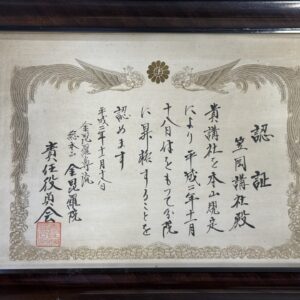 認証
笠岡講社殿
貴講社を本山規定
により平成二年十一月
十八日付をもって分院
に昇格することを
認めます
平成二年十一月十八日
金毘羅尊院
総本山 金毘羅院
責任役員会